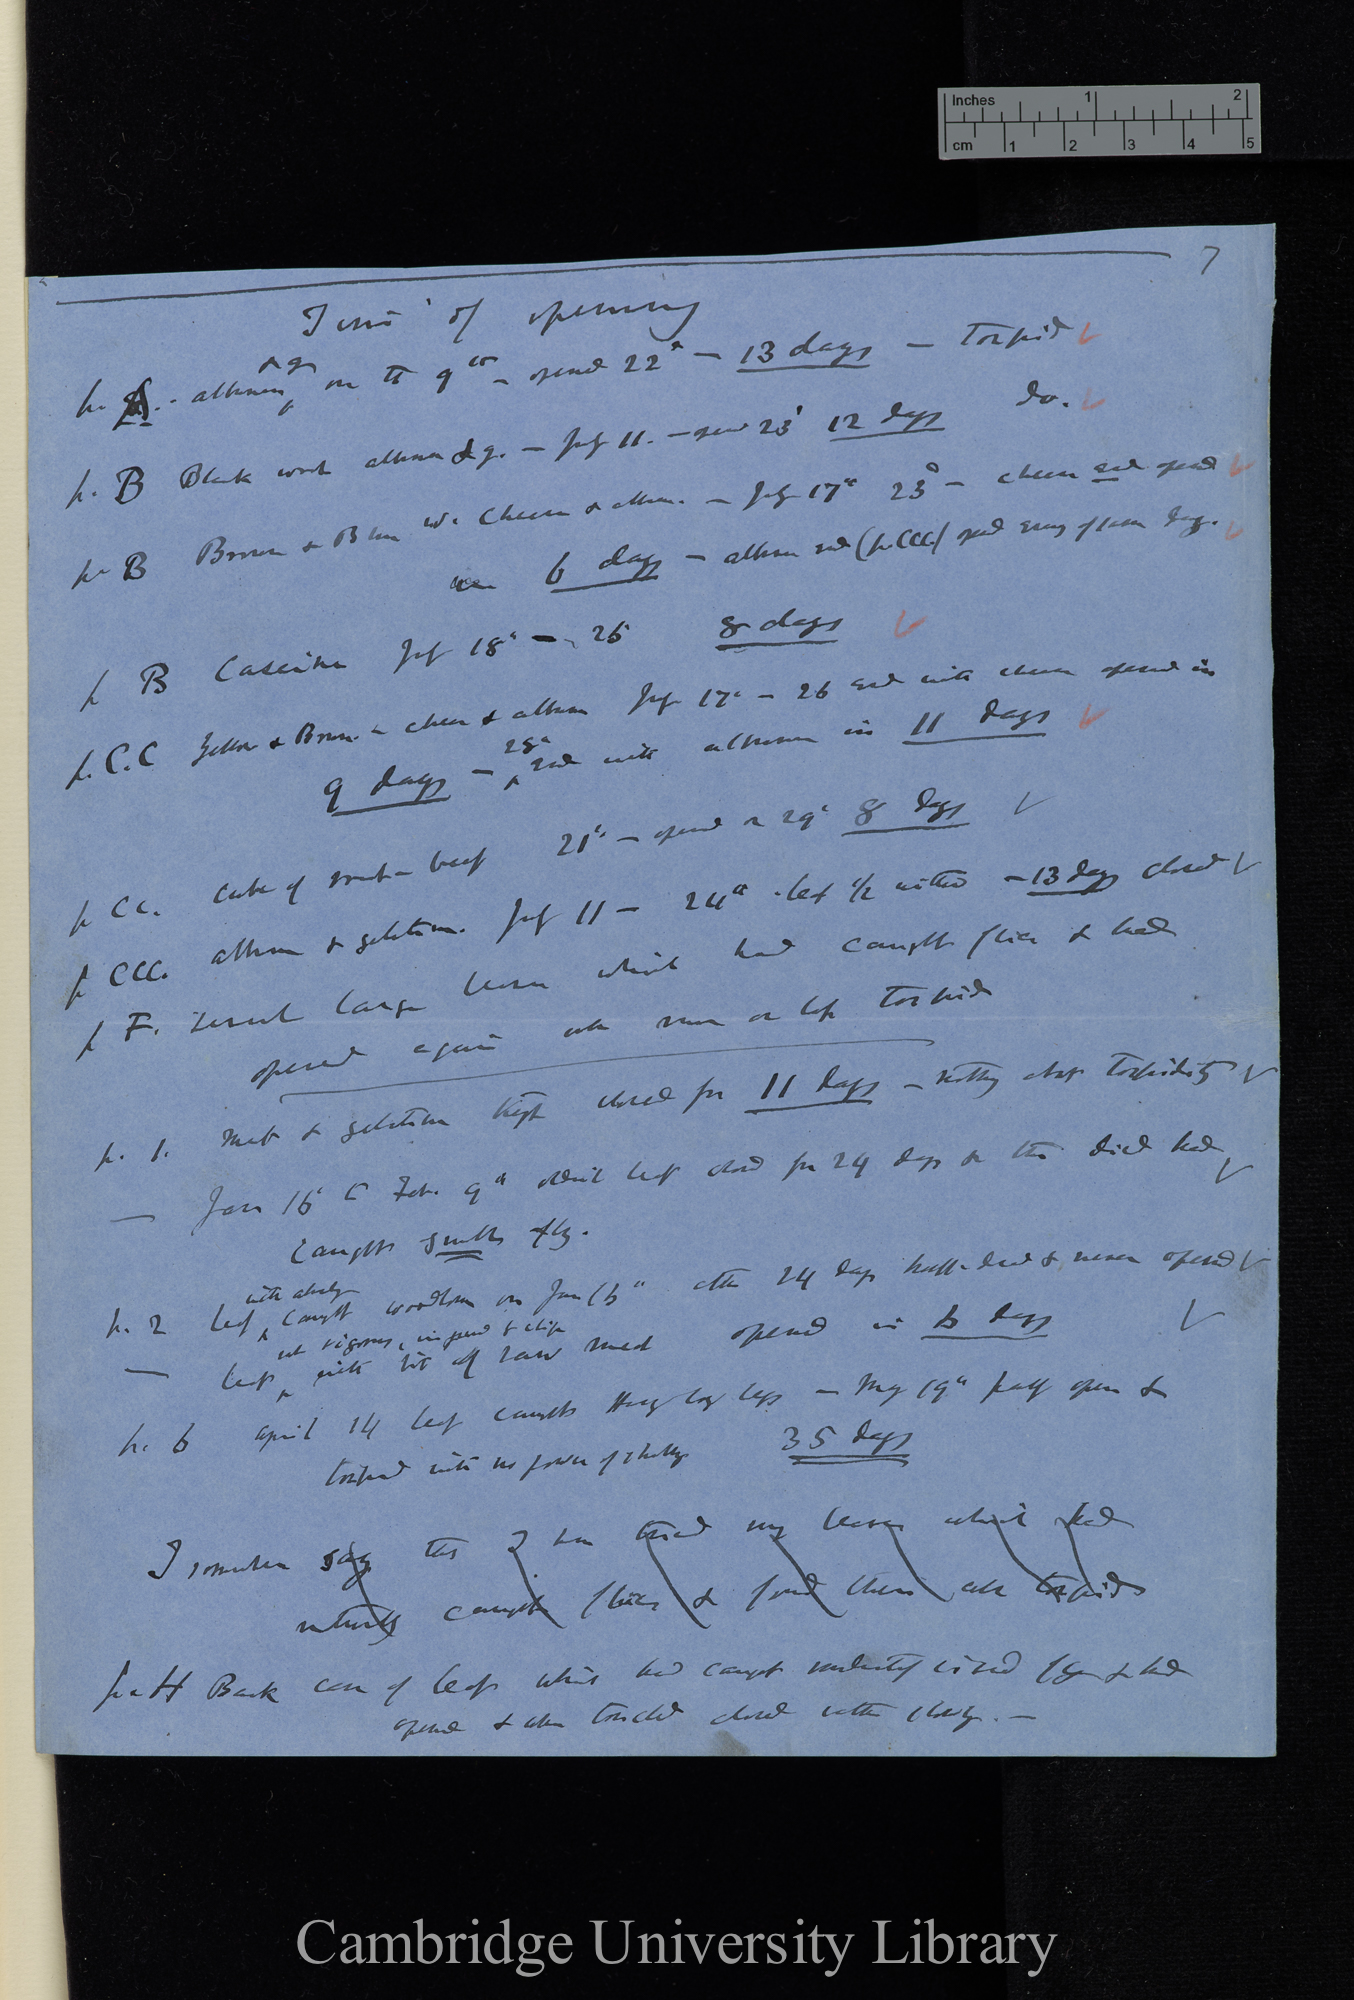 Inches 1 2
cm 1 2 3 4 5
7
Time of opening
& g
p. A. - albumen on the 9th – opened 22d – 13 days – torpid
p. B Black worst albumen & g. – July 11. – open 23d 12 days do.
p. B Brown & Blue Cheese & album. – July 17th 23d – cheese end opened
6 days – album end (p. CCC) opened days.
p B Caseine July 18th – 26 8 days
p. C.C Yellow & Brown – cheese & album July 17th – 26 end with cheese opened in
9 days – 28th end with albumen in 11 days
p CC. Cube of meat – beef 21st – opened on 29th 8 days
p CCC. album & gelatine. July 11 – 24th leaf 1/2 – 13 days closed
p F. Several large leaves which had caught flies & had
opened again were more or less torpid
p. 1. Meat & gelatine kept closed for 11 days – torpidity
— Jan 16th to Feb. 9th leaf closed for 24 days & then died had
caught fly.
with
p. 2 leaf caught woodlouse on Jan 16th after 24 days half-dead & never opened
not vigorous,
— leaf with bit of raw meat opened in 6 days
p. 6 April 14 leaf caught Harry long legs – May 19th half open &
torpid with no power of shutting 35 days
I somewhere say that I have tried my leaves which had
naturally caught flies & found them all torpid
p. H Back case of leaf which had caught & had
opened & when touched closed rather slowly. –
Cambridge University Library